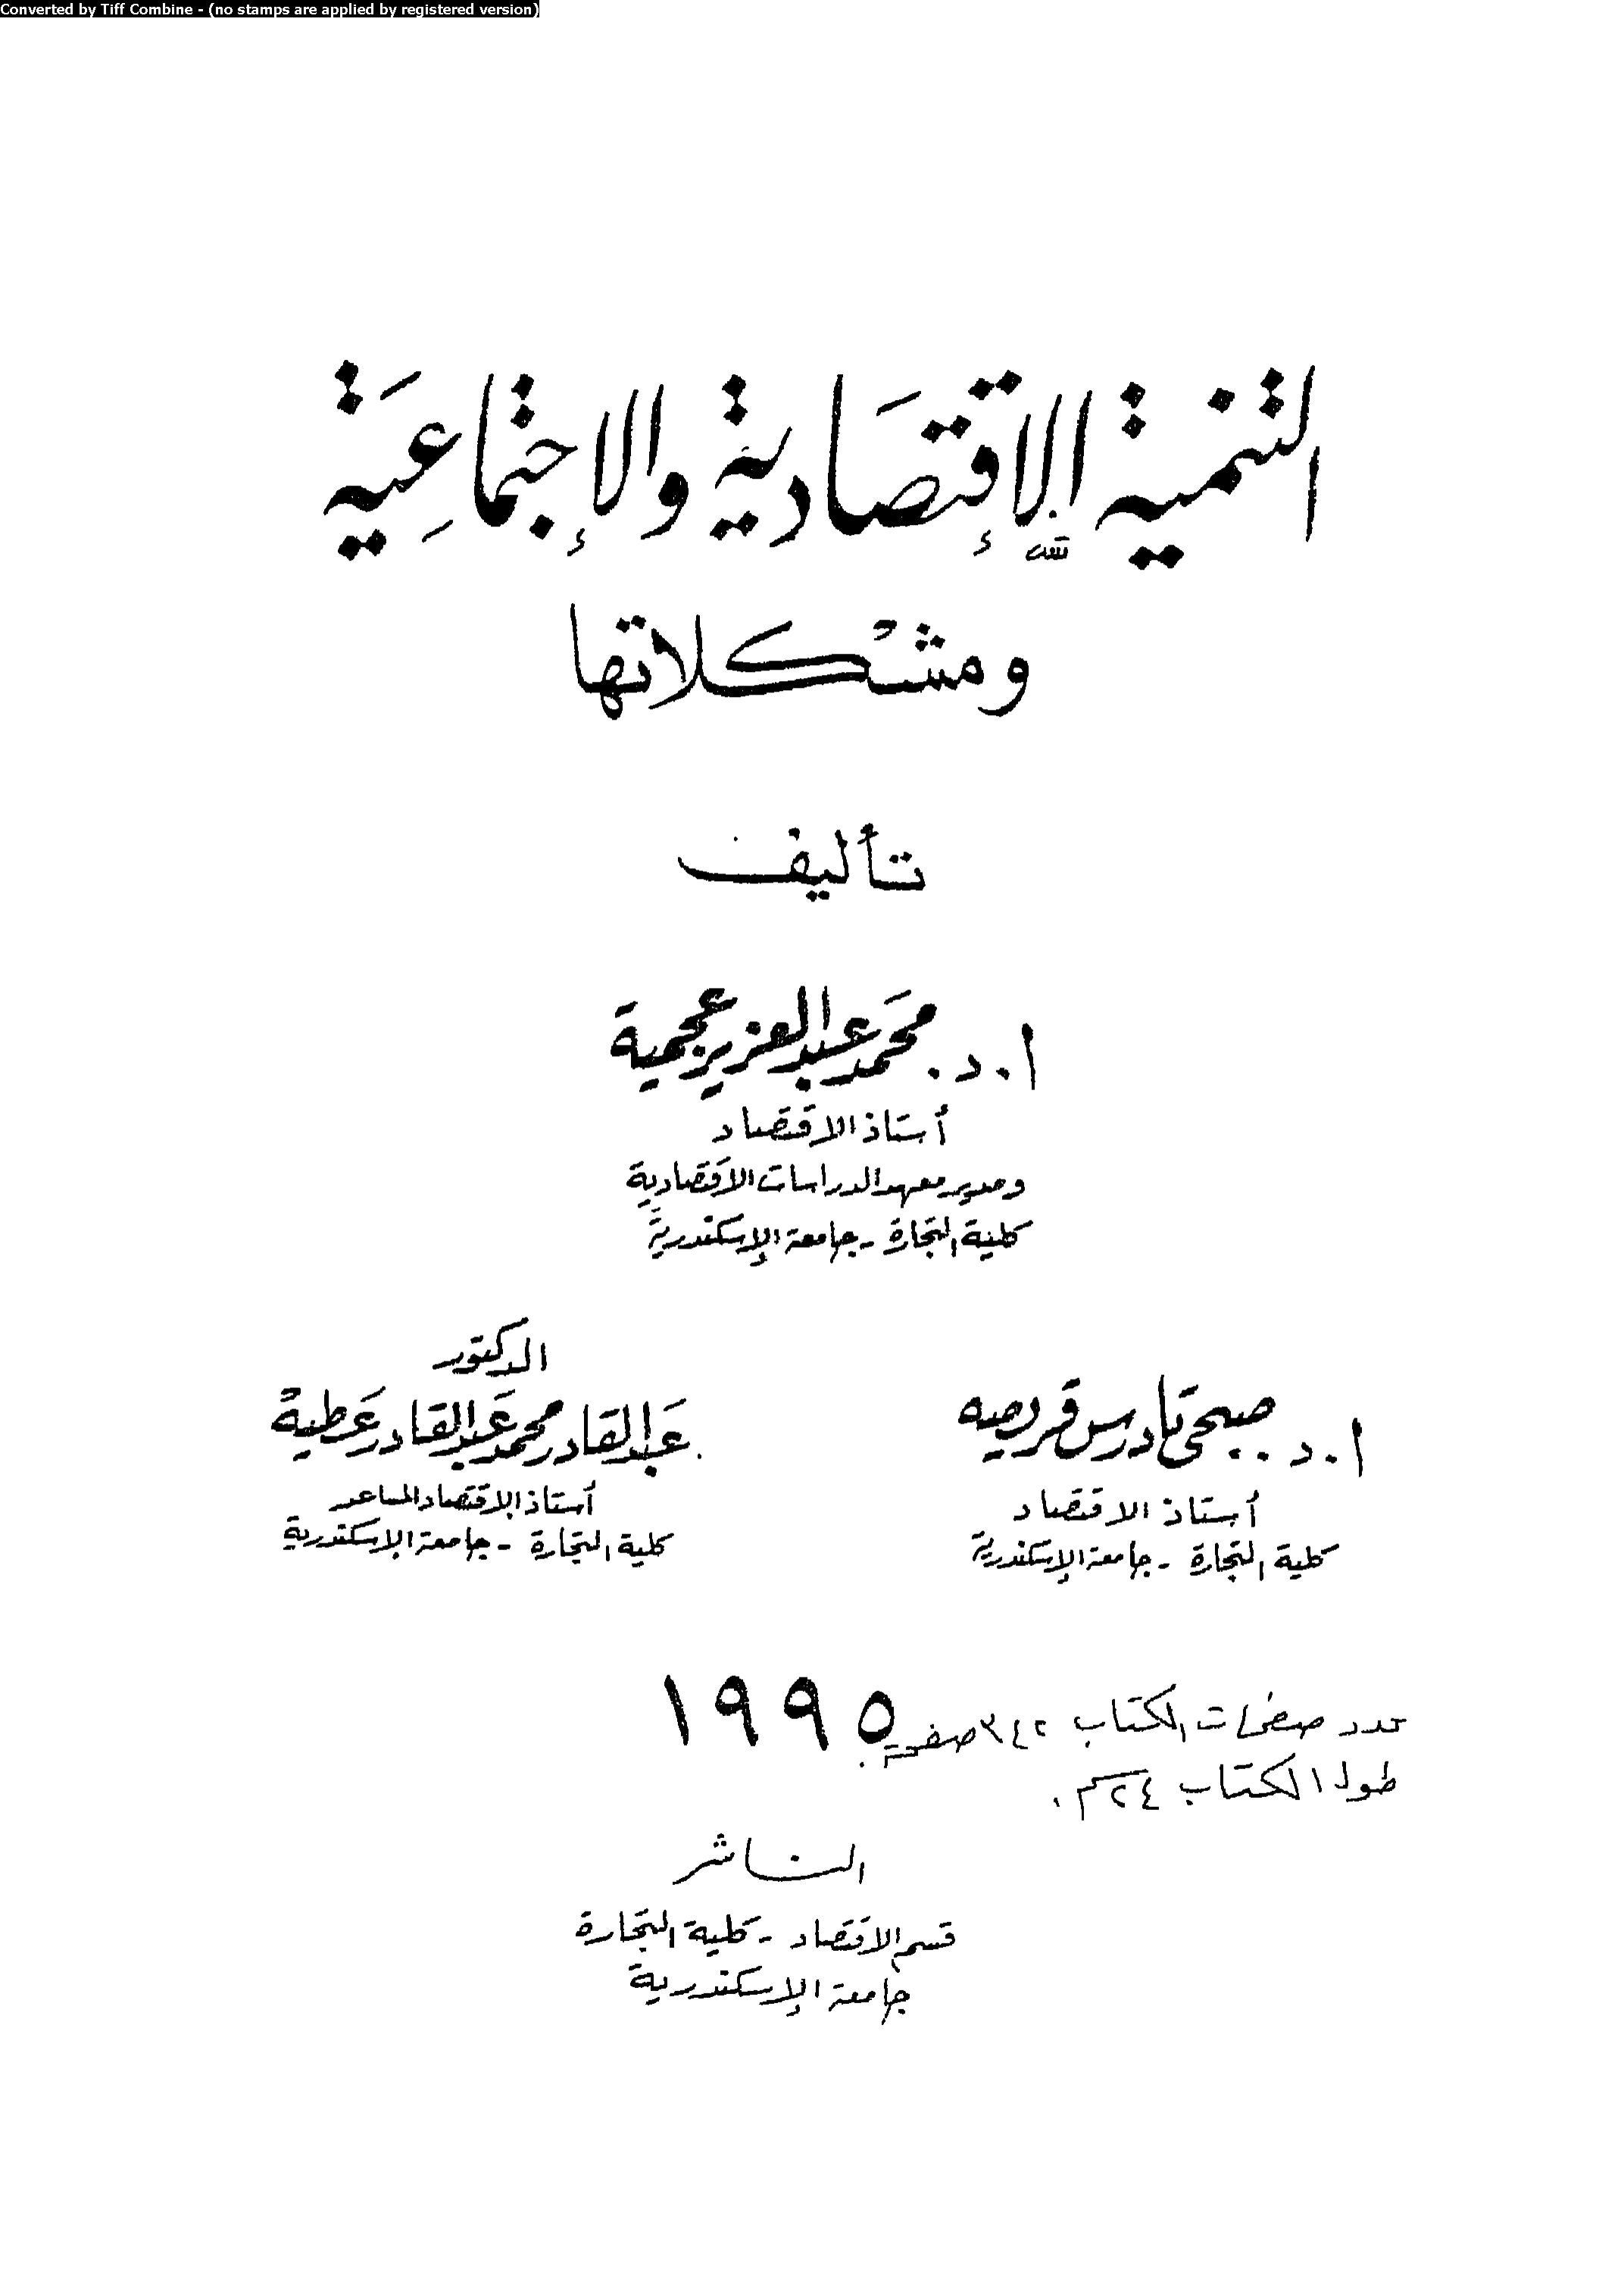 Converted by Tiff Combine - (no stamps are applied by registered version)
التنمية الإقتصادية والإجتماعية
ومشكلاتها
تأليف
ا. د. محمد عبد العزيز عجمية
أستاذ الاقتصاد
ومدير معهد الدراسات الاقتصادية
كلية التجارة - جامعة الإسكندرية
ا. د. صبحى تادرس قريصه
أستاذ الاقتصاد
كلية التجارة - جامعة الإسكندرية
الدكتور
عبد القادر محمد عبد القادر عطية
أستاذ الاقتصاد المساعد
كلية التجارة - جامعة الإسكندرية
١٩٩٥
عدد صفحات الكتاب ٣٤٢ صفحة.
طول الكتاب ٢٤ سم.
الناشر
قسم الاقتصاد - كلية التجارة
جامعة الإسكندرية